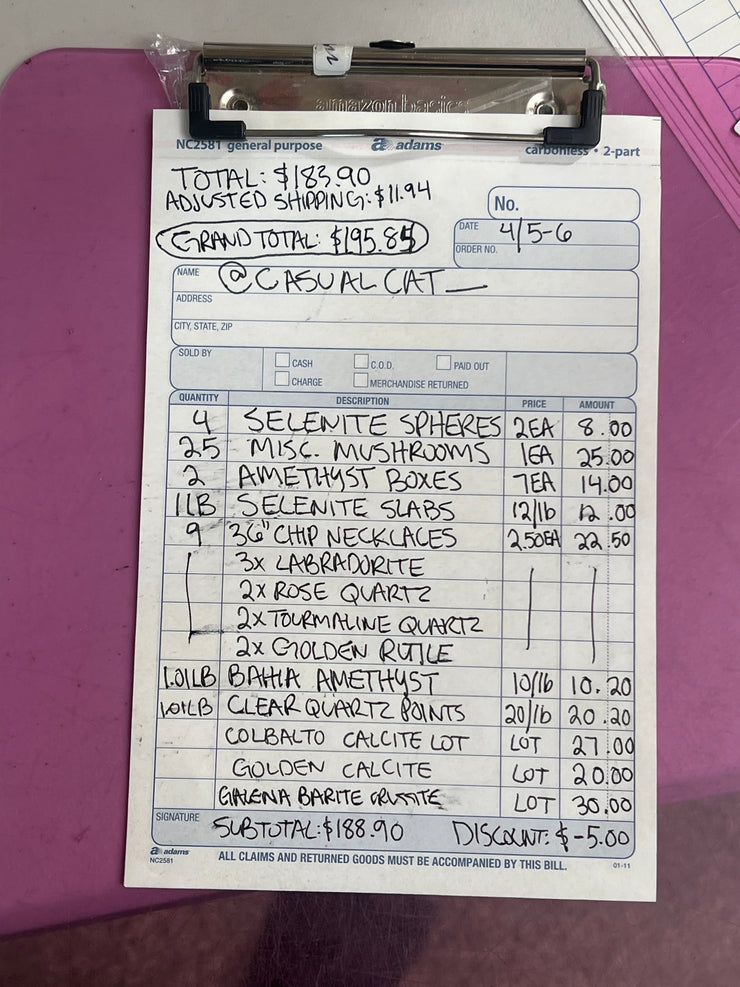 amazon basics
NC2581 general purpose adams carbonless • 2-part
TOTAL: $183.90
ADJUSTED SHIPPING: $11.94
GRAND TOTAL: $195.84
No.
DATE 4/5-6
ORDER NO.
NAME @CASUALCAT_
ADDRESS
CITY, STATE, ZIP
SOLD BY CASH C.O.D. PAID OUT
CHARGE MERCHANDISE RETURNED
QUANTITY DESCRIPTION PRICE AMOUNT
4 SELENITE SPHERES 2EA 8.00
25 MISC. MUSHROOMS 1EA 25.00
2 AMETHYST BOXES 7EA 14.00
1LB SELENITE SLABS 12/lb 12.00
9 36" CHIP NECKLACES 2.50EA 22.50
3x LABRADORITE
2x ROSE QUARTZ
2x TOURMALINE QUARTZ
2x GOLDEN RUTILE
1.01LB BAHIA AMETHYST 10/lb 10.20
1.01LB CLEAR QUARTZ POINTS 20/lb 20.20
COLBALTO CALCITE LOT LOT 27.00
GOLDEN CALCITE LOT 20.00
GALENA BARITE LOT 30.00
SIGNATURE SUBTOTAL: $188.90 DISCOUNT: $-5.00
adams
NC2581 ALL CLAIMS AND RETURNED GOODS MUST BE ACCOMPANIED BY THIS BILL. 01-11